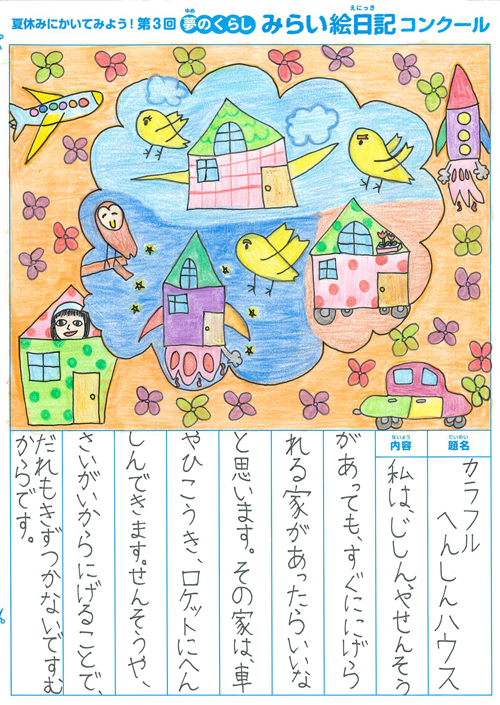 夏休みにかいてみよう!第3回 夢のくらし みらい絵日記 コンクール
ゆめ
えにっき
だいめい
題名
カラフル
へんしんハウス
ないよう
内容
私は、じしん、やせんそう
があっても、すぐににげら
れる家があったらいいな
と思います。その家は、車
やひこうき、ロケットにへん
しんできます。せんそうや、
さいがいからにげることで、
だれもきずつかないですむ
からです。